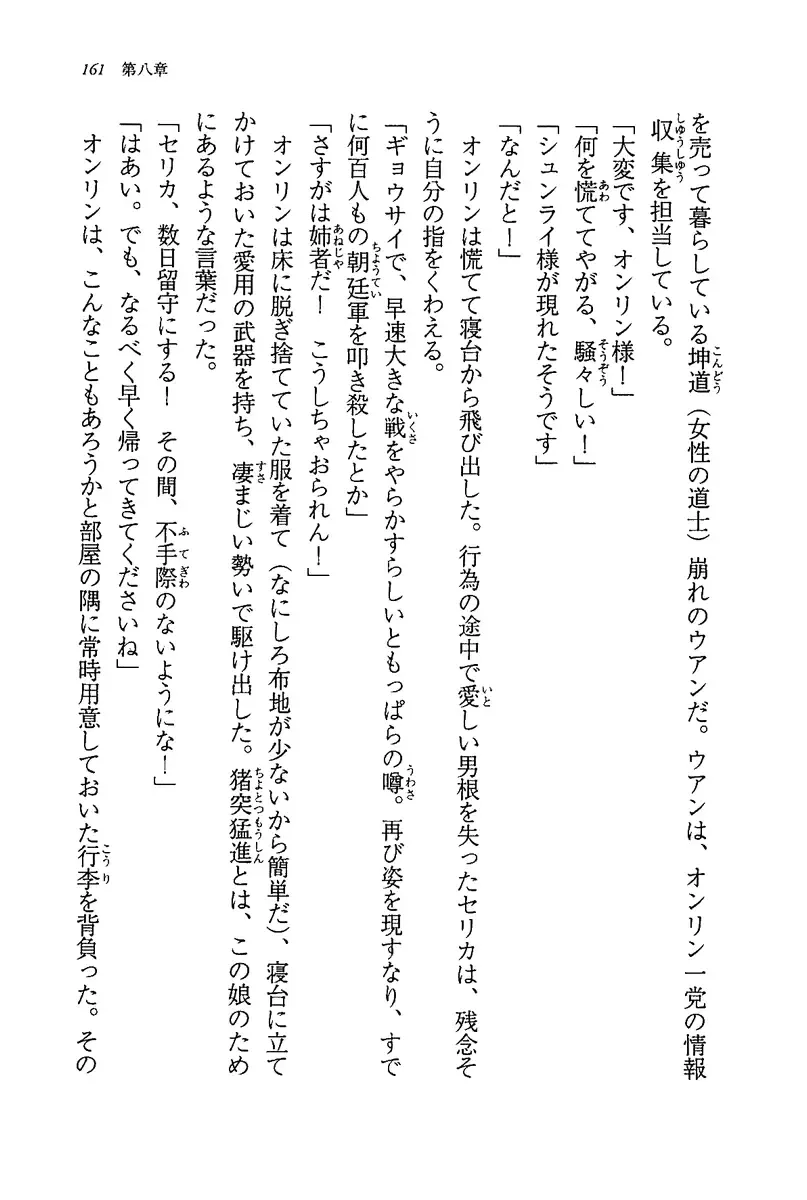 161 第八章
を売って暮らしている坤道（女性の道士）崩れのウアンだ。ウアンは、オンリン一党の情報
収集を担当している。
「大変です、オンリン様！」
「何を慌ててやがる、騒々しい！」
「シュンライ様が現れたそうです」
「なんだと！」
オンリンは慌てて寝台から飛び出した。行為の途中で愛しい男根を失ったセリカは、残念そ
うに自分の指をくわえる。
「ギョウサイで、早速大きな戦をやらかすらしいともっぱらの噂。再び姿を現すなり、すで
に何百人もの朝廷軍を叩き殺したとか」
「さすがは姉者だ！　こうしちゃおられん！」
オンリンは床に脱ぎ捨てていた服を着て（なにしろ布地が少ないから簡単だ）、寝台に立て
かけておいた愛用の武器を持ち、凄まじい勢いで駆け出した。猪突猛進とは、この娘のため
にあるような言葉だった。
「セリカ、数日留守にする！　その間、不手際のないようにな！」
「はあい。でも、なるべく早く帰ってきてくださいね」
オンリンは、こんなこともあろうかと部屋の隅に常時用意しておいた行李を背負った。その